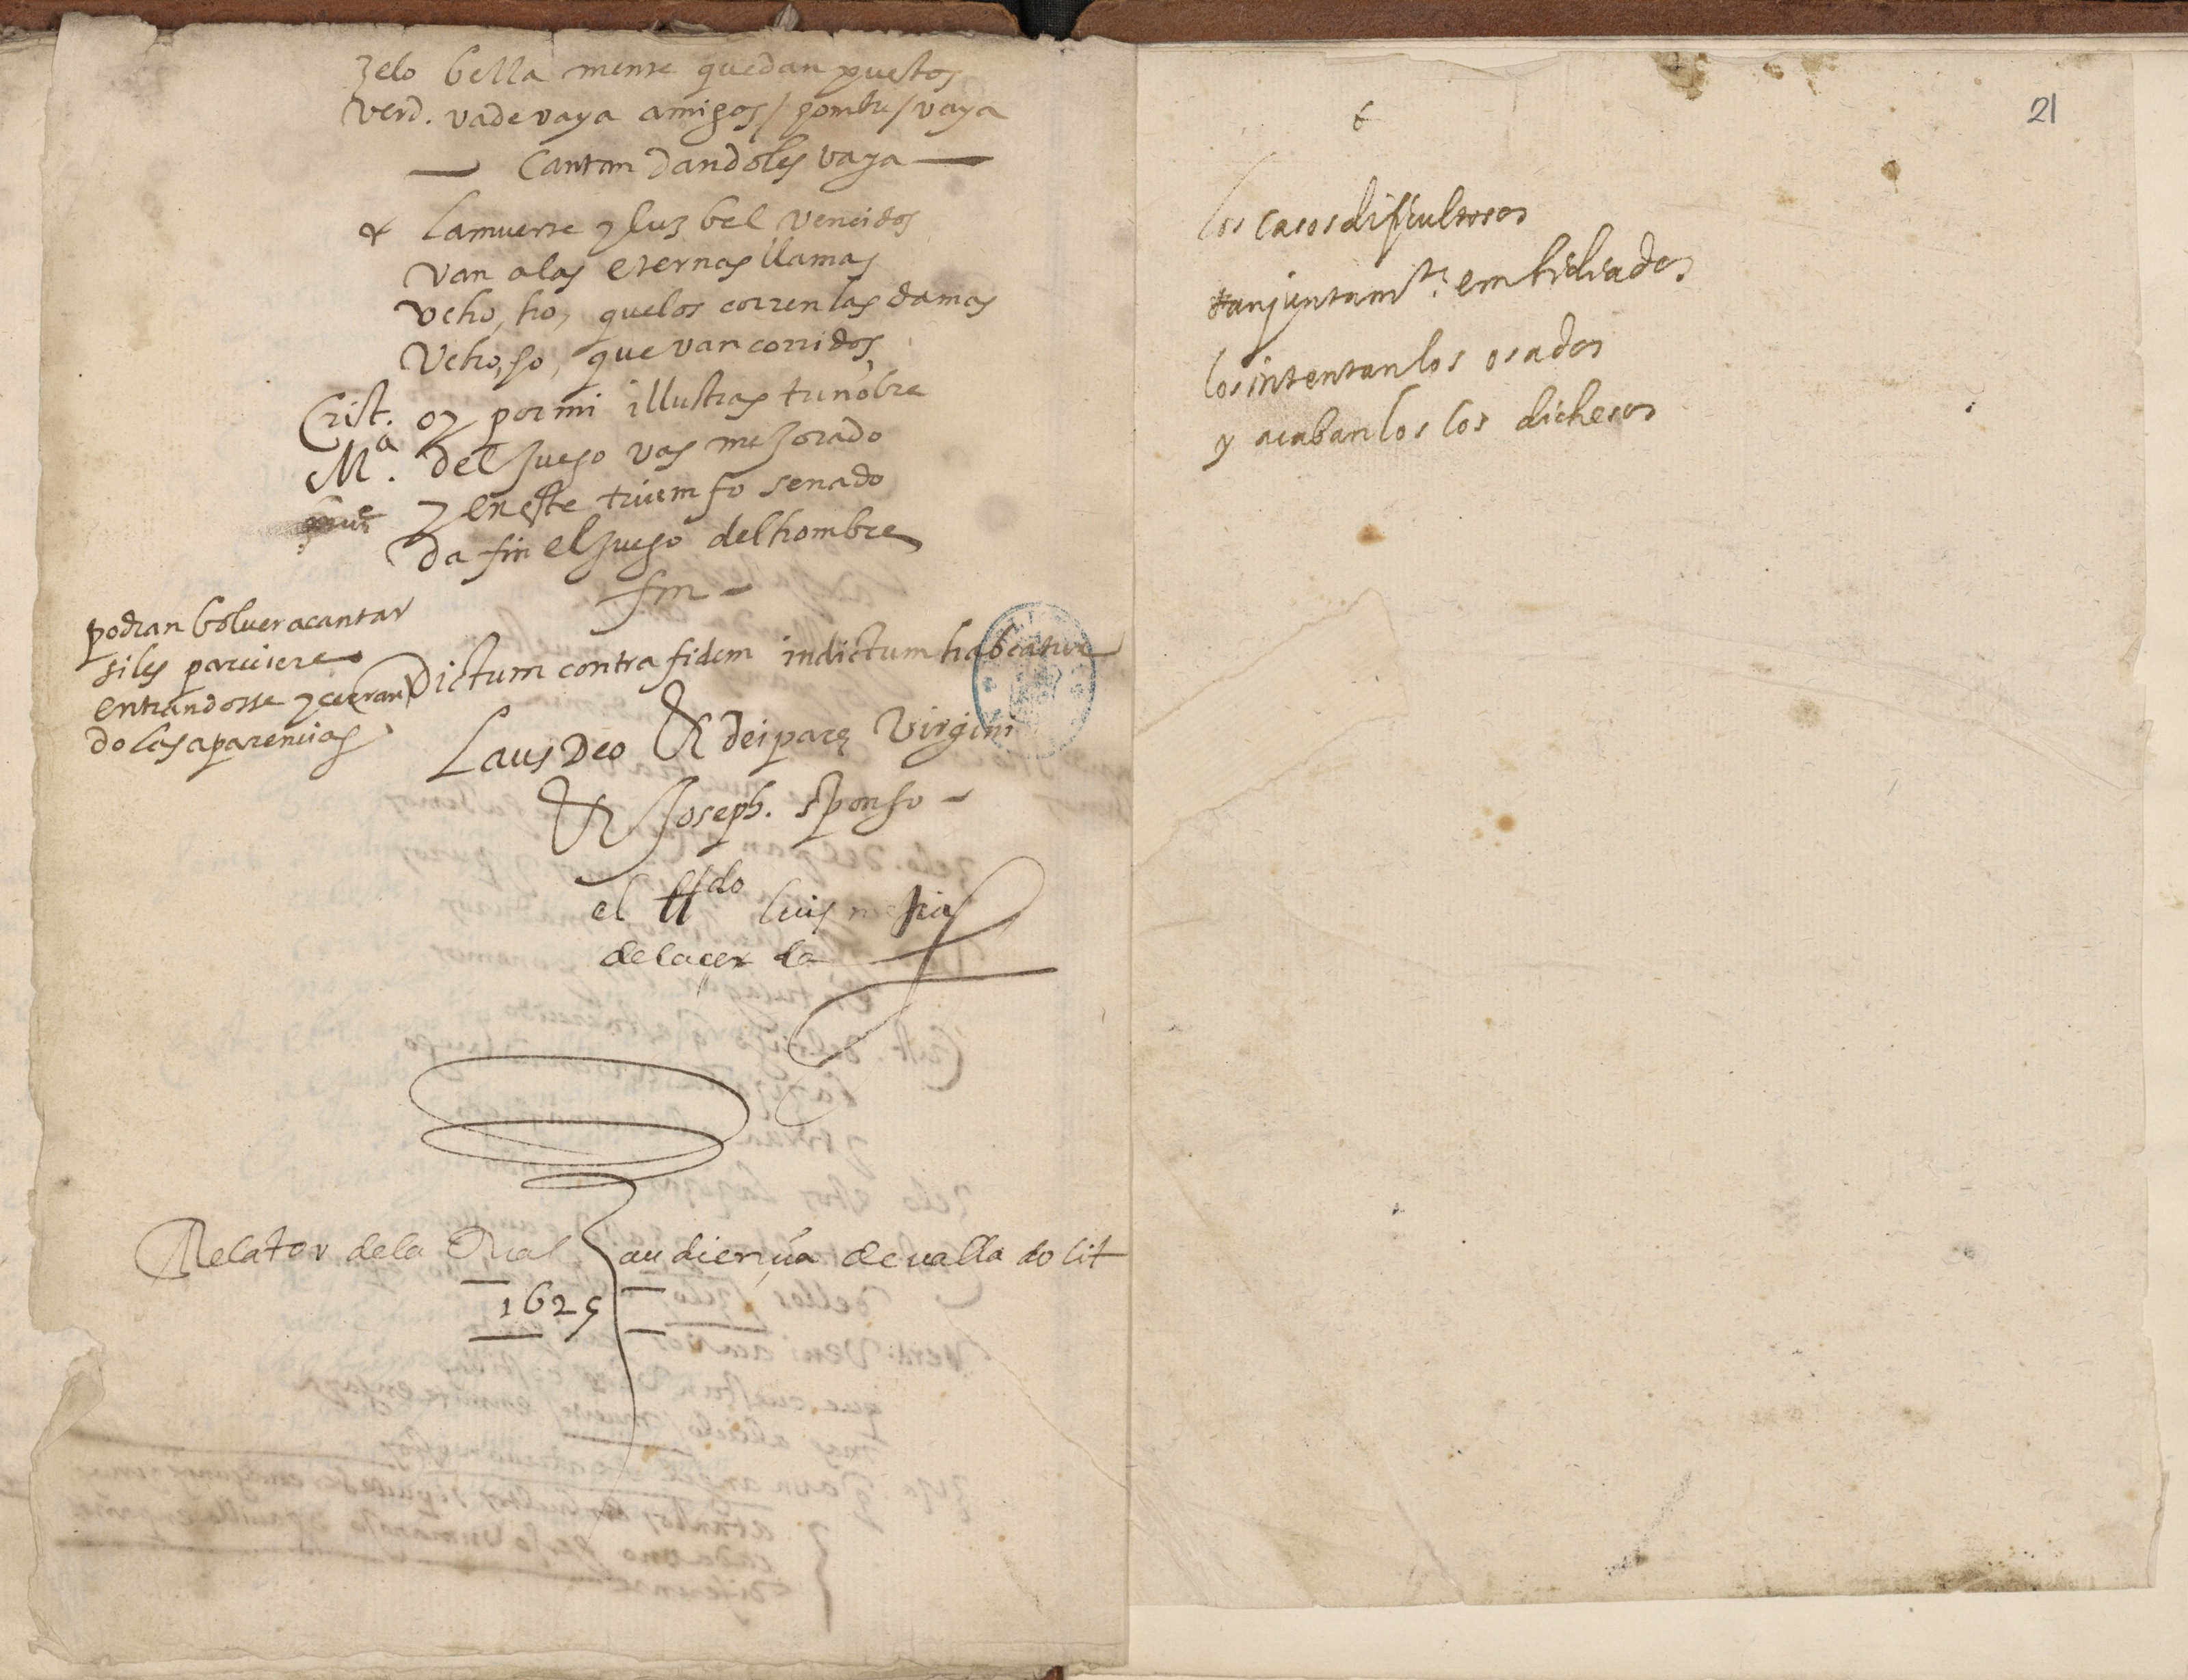 zelo bella mente quedan puestos
verd. vade vaya amigos / hombre / vaya
Cantan dandoles vaya
& La muerte y luz bel vencidos
van a las eternas llamas
Vcho, ho, que los corren las damas
Vcho, ho, que van corridos
Crist. oy por mi illustras tu nobre
Mª. del juego vas mejorado
y en este triumfo senado
da fin el juego del hombre
fin
podran bolver a cantar
si les pareciere
entrandosse y cerran
do las aparencias
Dictum contra fidem indictum habeatur
Laus Deo & deiparę Virgini
& Joseph. sponso
el lldo luis mejia
de la cerda
Relator de la Real audiençia de valla do lit
1625
21
los casos dificultosos
tan juntamte. embidiados
los intentan los osados
y acaban los los dichosos